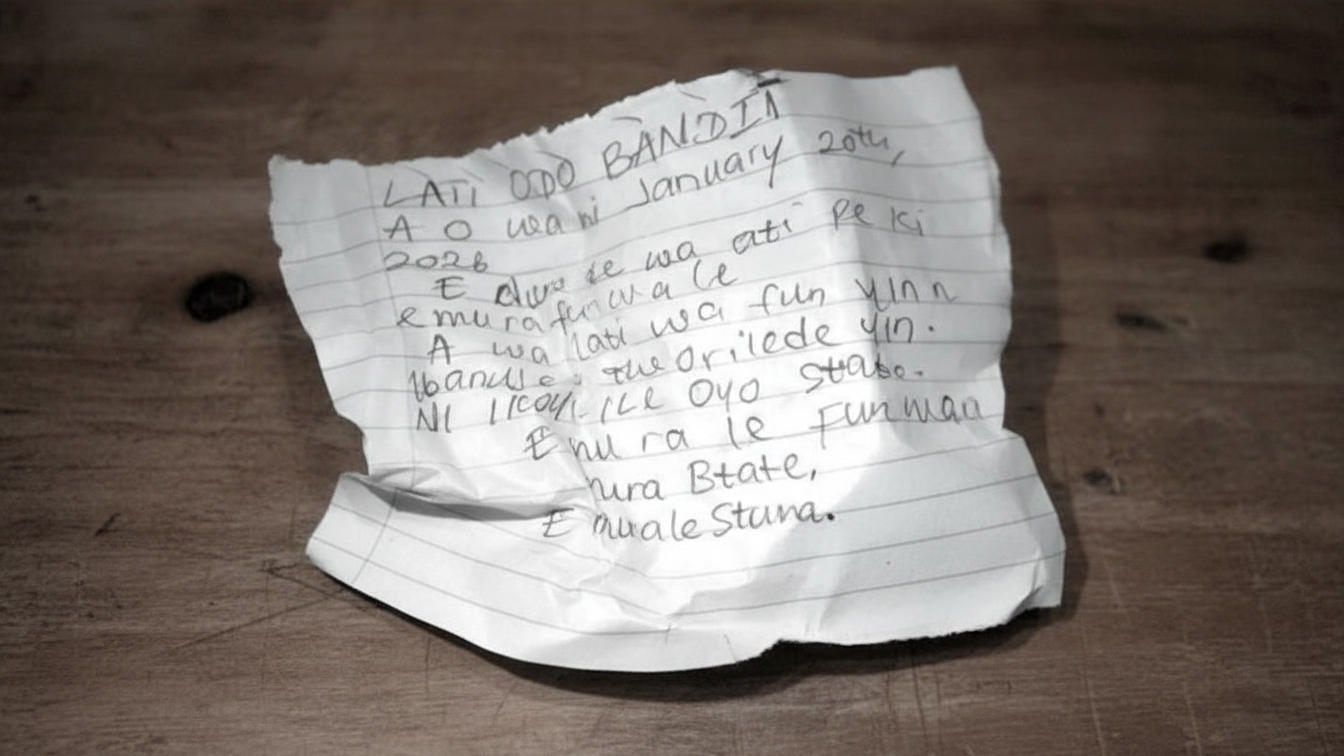 LATI ODO BANDIT
A O wa ni January 20th,
2026
E dura de wa ati pe ki
emura fun wa le
A wa lati wa fun yinn
the Orilede yin.
NI IKOYI-ILE OYO State.
E mu ra le Fun waa
mura Btate,
E muale Stuna.